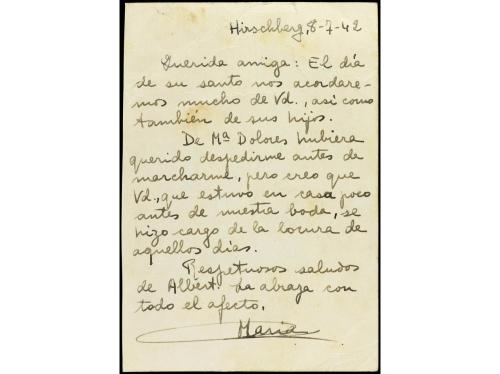 Hirschberg, 8-7-42
Querida amiga: El día
de su santo nos acordare-
mos mucho de Vd., así como
también de sus hijos.
De Mª Dolores hubiera
querido despedirme antes de
marcharme, pero creo que
Vd., que estuvo en casa poco
antes de nuestra boda, se
hizo cargo de la locura de
aquellos días.
Respetuosos saludos
de Albert. La abraza con
todo el afecto,
Maria